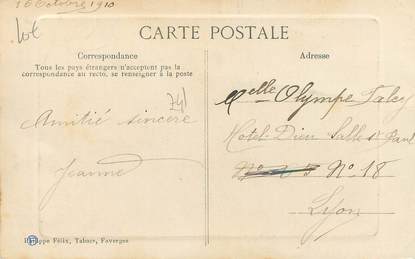 16 Octobre 1910
Lot
CARTE POSTALE
Correspondance
Tous les pays étrangers n'acceptent pas la
correspondance au recto, se renseigner à la poste
741
Amitié sincère
Jeanne
Adresse
Melle Olympe
Hotel-Dieu Salle St Paul
No 18
Lyon
Philippe Félix, Tabacs, Faverges